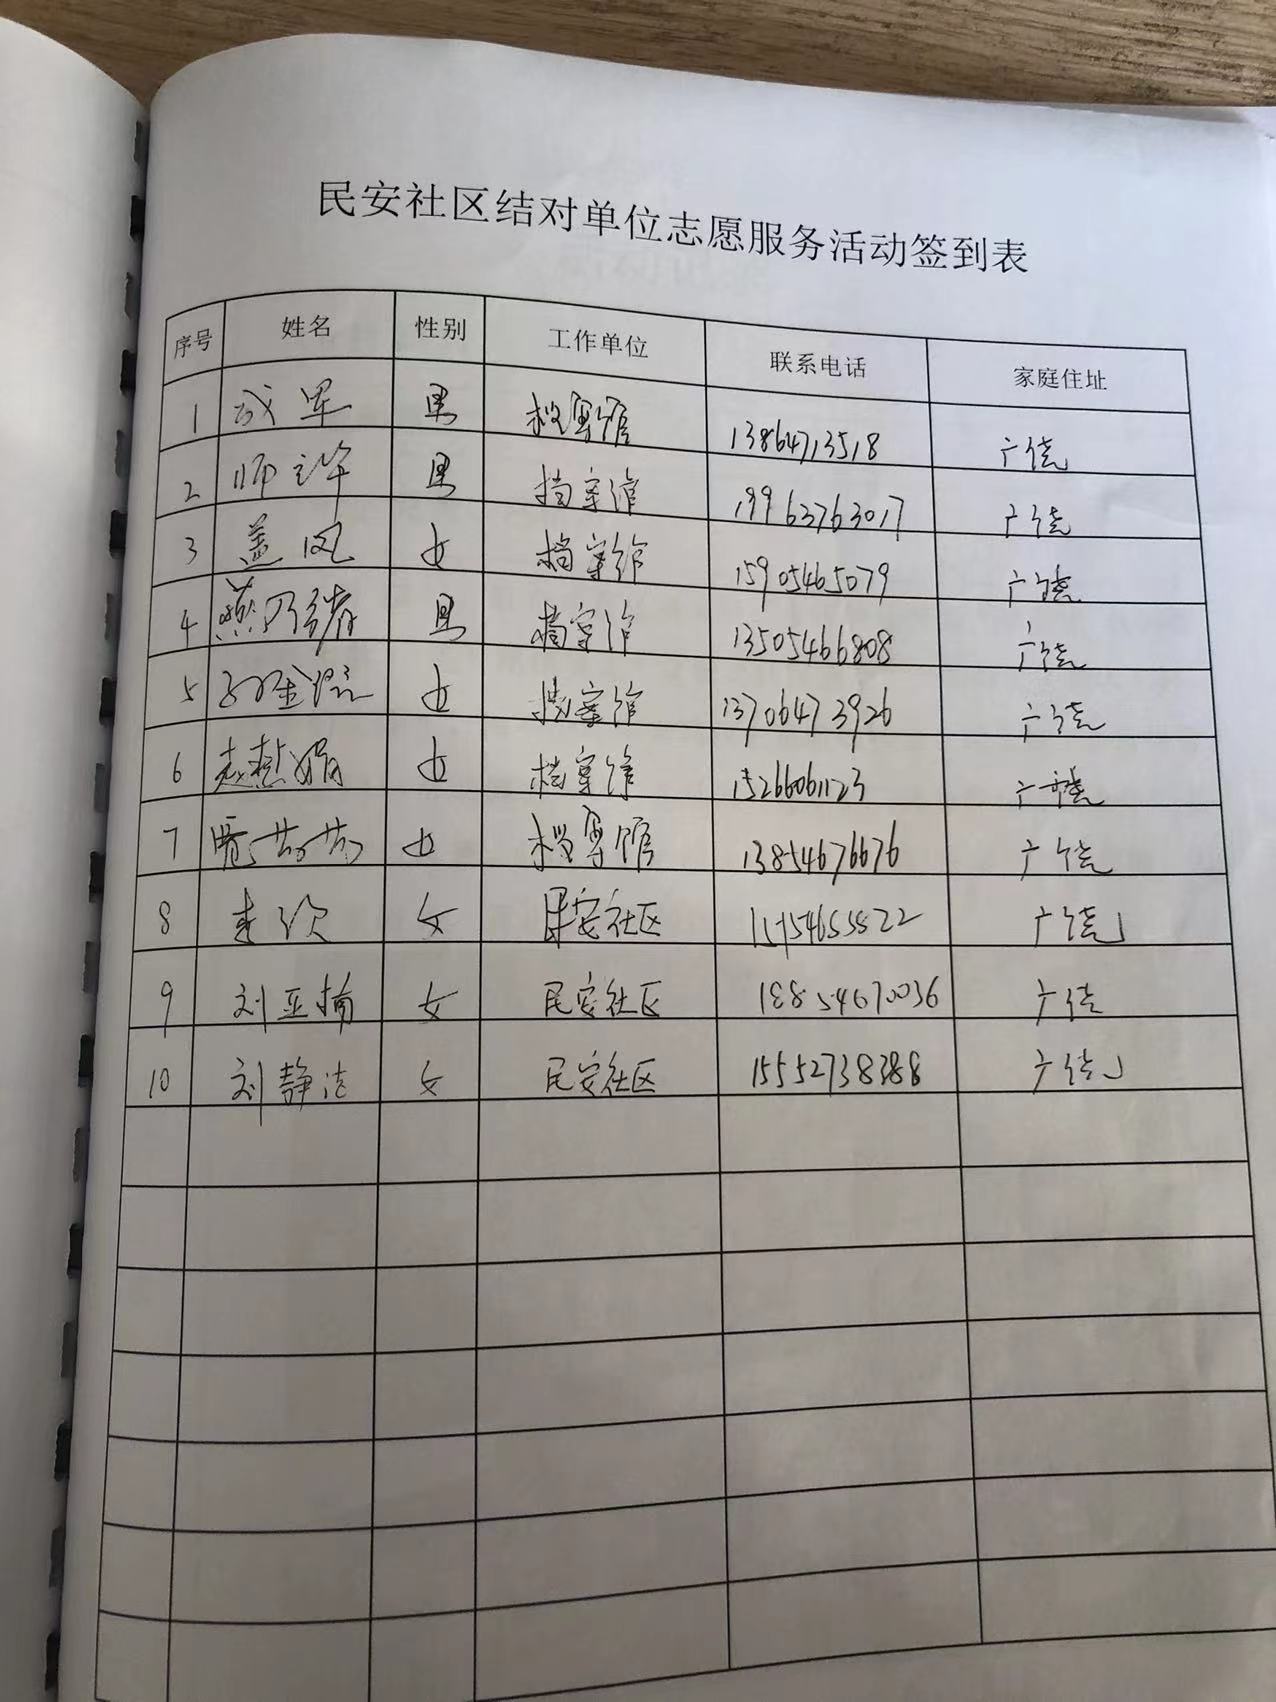 民安社区结对单位志愿服务活动签到表
序号 姓名 性别 工作单位 联系电话 家庭住址
1 成军 男 档案馆 13864713518 广饶
2 师 男 档案馆 19963763017 广饶
3 盖凤 女 档案馆 15905465079 广饶
4 燕乃绪 男 档案馆 13505466808 广饶
5 女 档案馆 13706473926 广饶
6 赵 娟 女 档案馆 15266061123 广饶
7 女 档案馆 13854676676 广饶
8 女 民安社区 广饶
9 刘亚楠 女 民安社区 18854670036 广饶
10 刘静洁 女 民安社区 15552738388 广饶